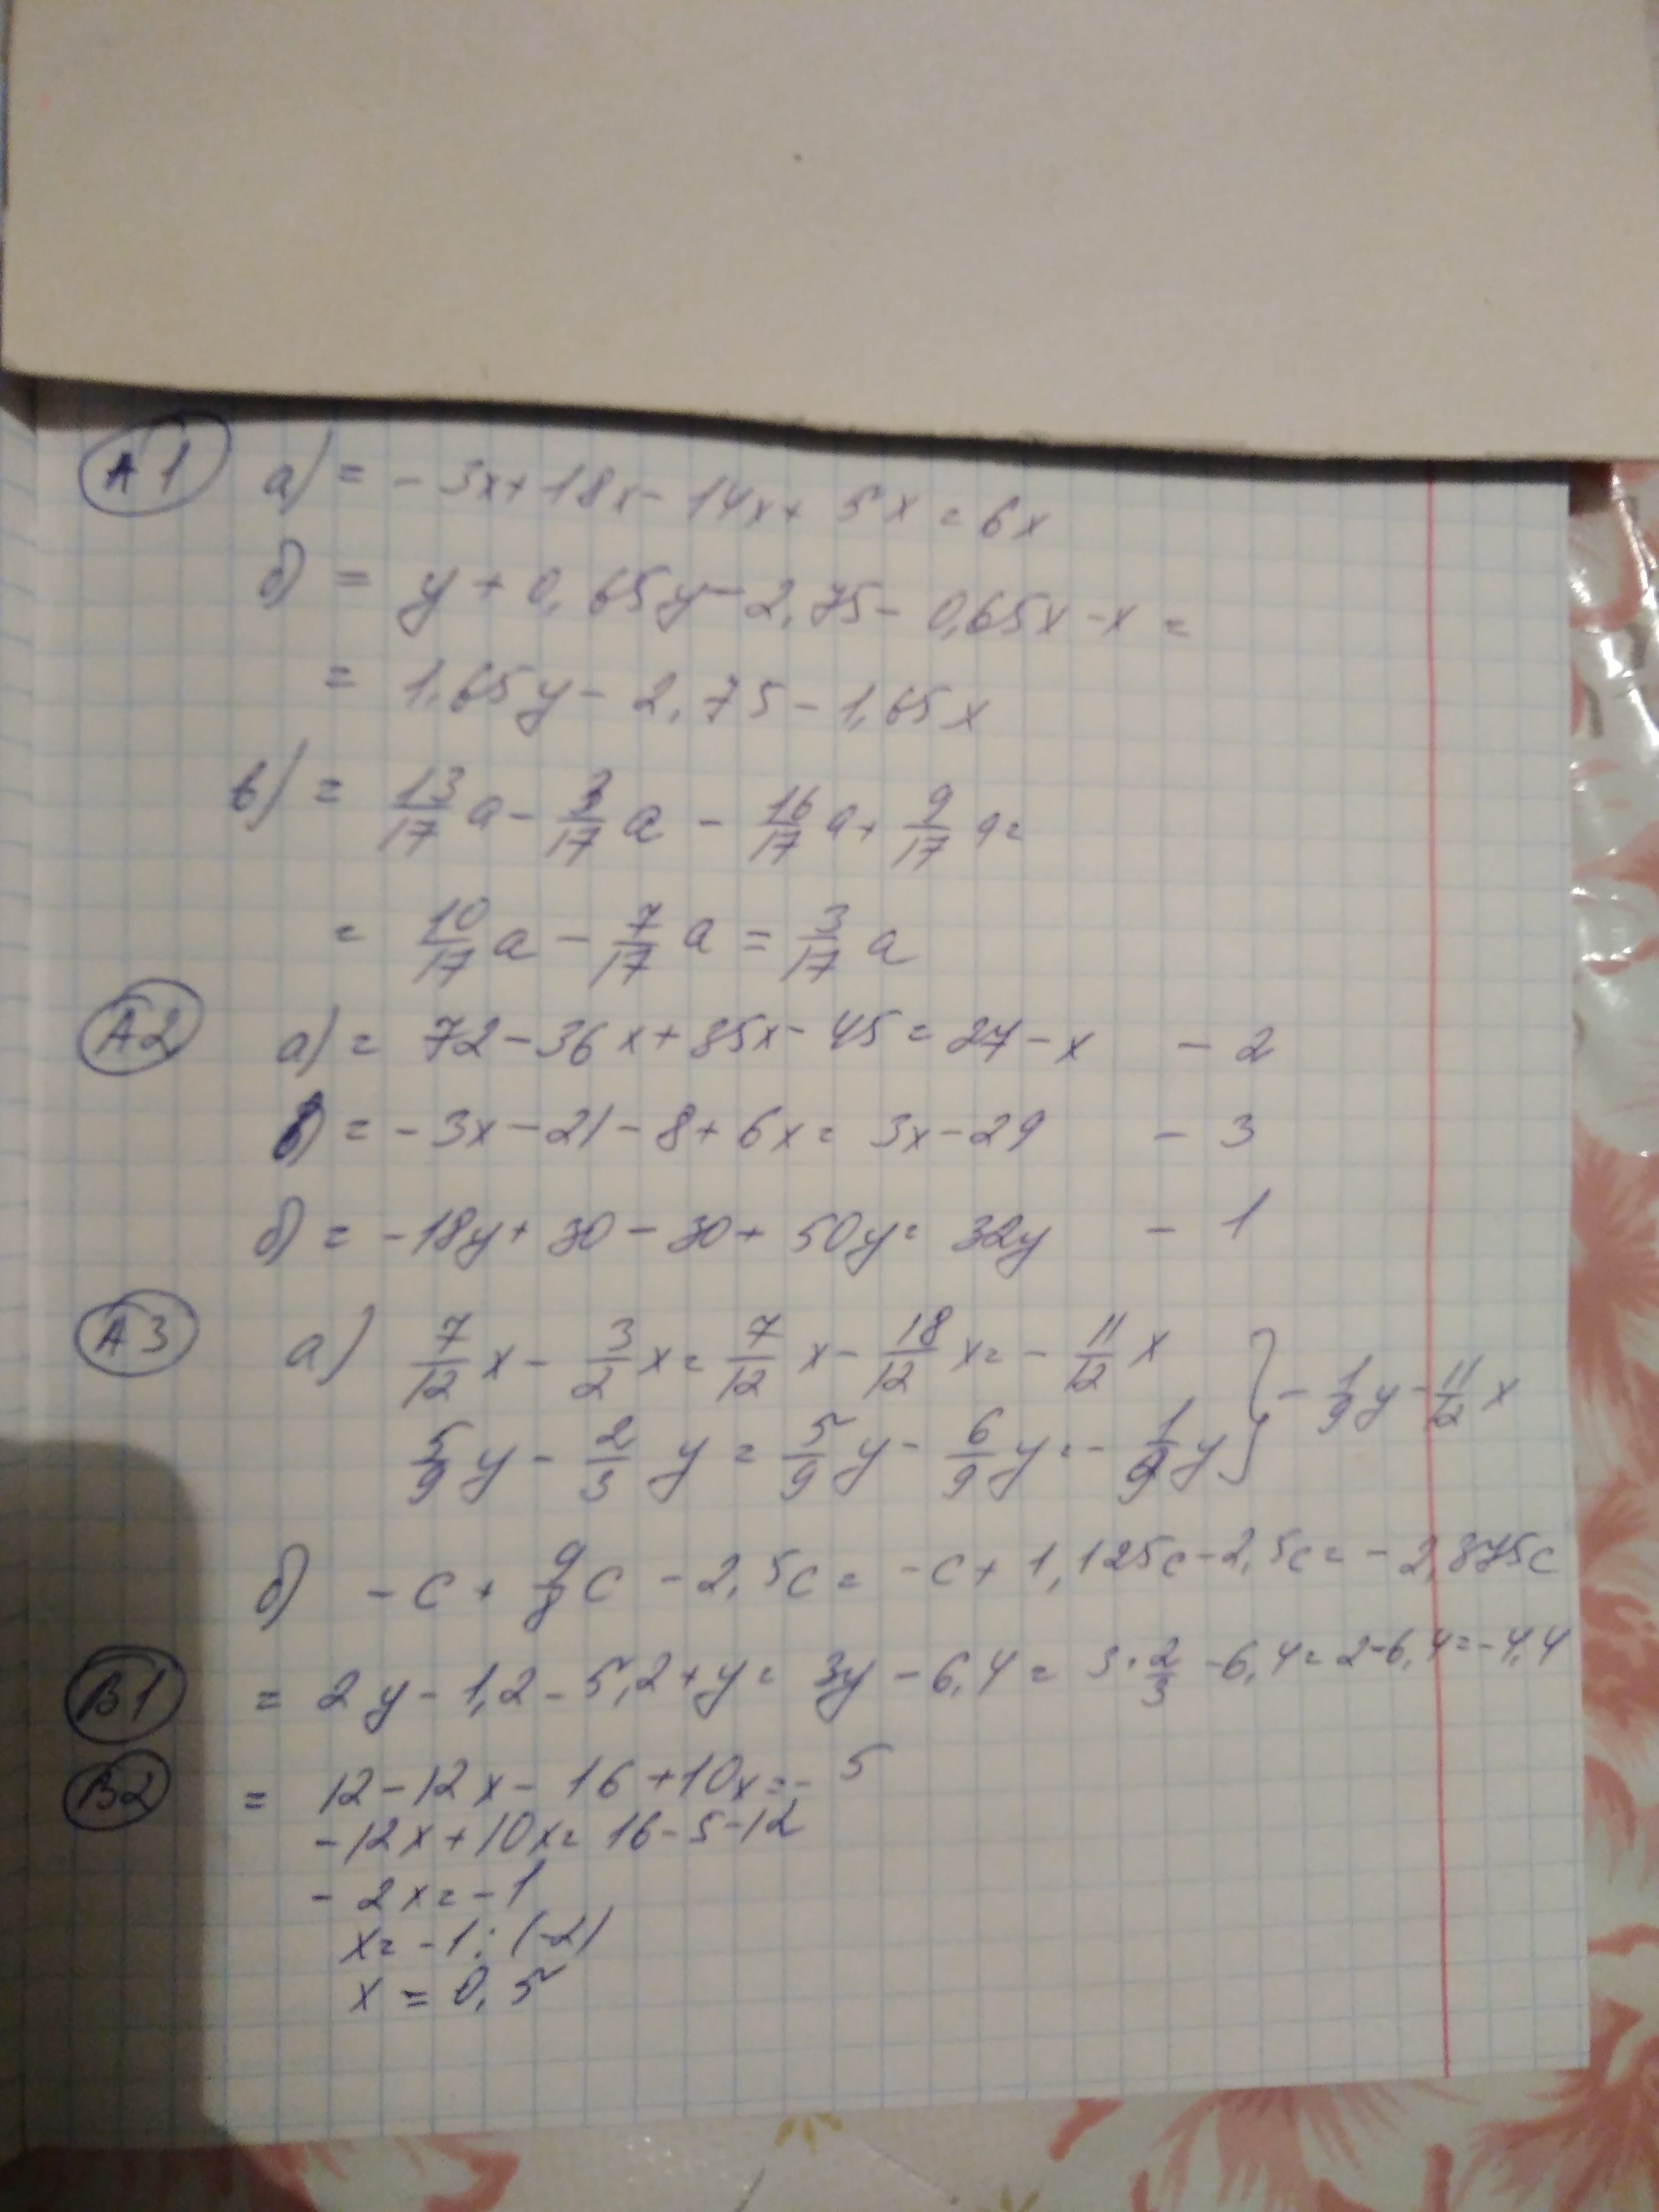 А1 а) = - 3x + 18x - 14x + 5x = 6x
б) = y + 0,65y - 2,75 - 0,65x - x =
= 1,65y - 2,75 - 1,65x
в) = 13/17 a - 3/17 a - 16/17 a + 9/17 a =
= 10/17 a - 7/17 a = 3/17 a
А2 а) = 72 - 36x + 35x - 45 = 27 - x - 2
в) = - 3x - 21 - 8 + 6x = 3x - 29 - 3
б) = - 18y + 30 - 30 + 50y = 32y - 1
А3 а) 7/12 x - 3/2 x = 7/12 x - 18/12 x = - 11/12 x
5/9 y - 2/3 y = 5/9 y - 6/9 y = - 1/9 y } - 1/9 y - 11/12 x
б) - c + 9/8 c - 2,5c = - c + 1,125c - 2,5c = - 2,375c
В1 = 2y - 1,2 - 5,2 + y = 3y - 6,4 = 3 · 2/3 - 6,4 = 2 - 6,4 = - 4,4
В2 = 12 - 12x - 16 + 10x = - 5
- 12x + 10x = 16 - 5 - 12
- 2x = - 1
x = - 1 : (-2)
x = 0,5